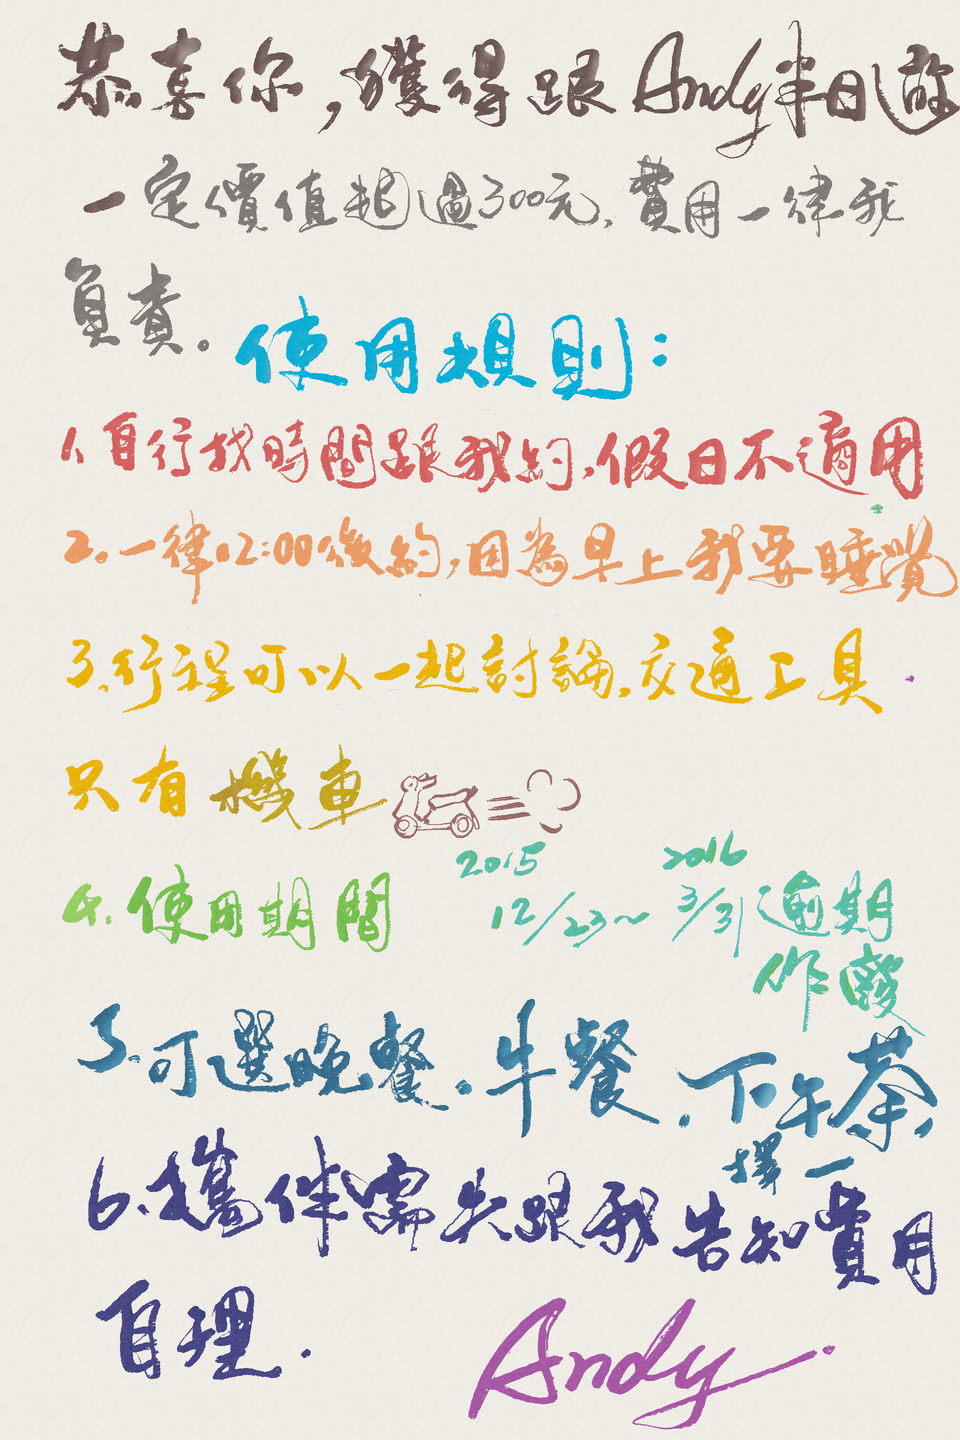 恭喜你，獲得跟Andy半日遊
一定價值超過300元，費用一律我
負責。
使用規則：
1.自行找時間跟我約，假日不適用
2.一律12:00後約，因為早上我要睡覺
3.行程可以一起討論，交通工具
只有機車
4.使用期間 2015 12/23～2016 3/31逾期
作廢
5.可選晚餐。午餐．下午茶
擇一
6.攜伴需先跟我告知費用
自理．
Andy